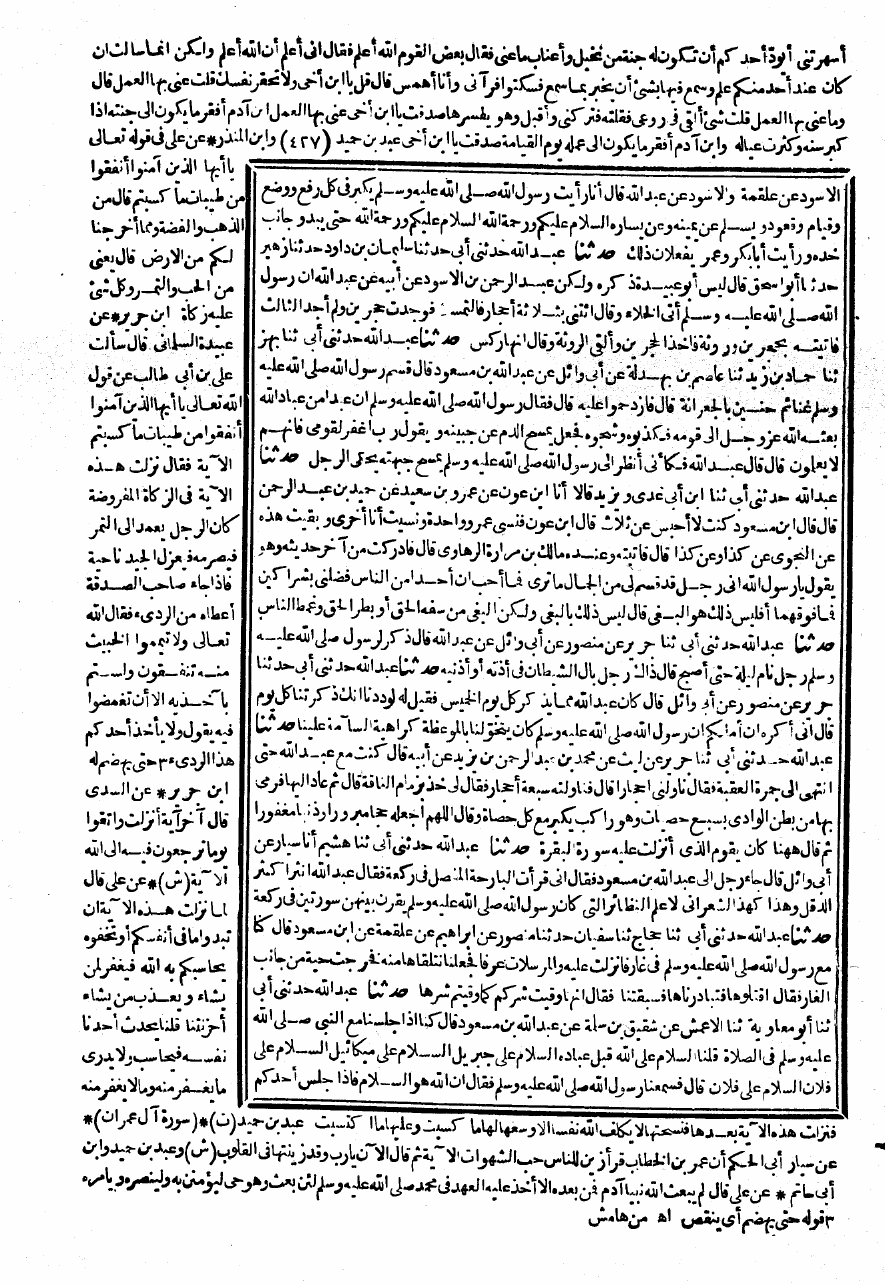 أسهرتني أيودّ أحدكم أن تكون له جنة من نخيل وأعناب ماعنى فقال بعض القوم الله أعلم فقال انى أعلم أن الله أعلم ولكن انما سألت ان
كان عند أحد منكم علم وسمع فيها بشئ أن يخبر بما سمع فسكتوا فرآنى وأنا أهمس قال قل يا ابن أخى ولا تحقر نفسك قلت عنى بها العمل قال
وما عنى بها العمل قلت شئ ألقى فى روعى فقلته فتركنى وأقبل وهو يفسرها صدقت يا ابن أخى عنى بها العمل ابن آدم أفقر ما يكون الى جنته اذا
كبر سنه وكثرت عياله وابن آدم أفقر ما يكون الى عمله يوم القيامة صدقت يا ابن أخى عبد بن حميد (٤٢٧) وابن المنذر * عن على فى قوله تعالى
الاسود عن علقمة والاسود عن عبد الله قال أنا رأيت رسول الله صلى الله عليه وسلم يكبر فى كل رفع ووضع
وقيام وقعود ويسلم عن يمينه وعن يساره السلام عليكم ورحمة الله السلام عليكم ورحمة الله حتى يبدو جانب
خده ورأيت أبا بكر وعمر يفعلان ذلك حدثنا عبد الله حدثنى أبى حدثنا سليمان بن داود حدثنا زهير
حدثنا أبو اسحق قال ليس أبو عبيدة ذكره ولكن عبد الرحمن بن الاسود عن أبيه عن عبد الله ان رسول
الله صلى الله عليه وسلم أتى الخلاء وقال ائتنى بثلاثة أحجار فالتمست فوجدت حجرين ولم أجد الثالث
فأتيته بحجرين وروثة فأخذ الحجرين وألقى الروثة وقال انها ركس حدثنا عبد الله حدثنى أبى ثنا بهز
ثنا حماد بن زيد ثنا عاصم بن بهدلة عن أبى وائل عن عبد الله بن مسعود قال قسم رسول الله صلى الله عليه
وسلم غنائم حنين بالجعرانة قال فازدحموا عليه قال فقال رسول الله صلى الله عليه وسلم ان عبدا من عباد الله
بعثه الله عز وجل الى قومه فكذبوه وشجوه فجعل يمسح الدم عن جبينه ويقول رب اغفر لقومى فانهم
لا يعلمون قال قال عبد الله فكأنى أنظر الى رسول الله صلى الله عليه وسلم يمسح جبهته يحكى الرجل حدثنا
عبد الله حدثنى أبى ثنا ابن أبى عدى ويزيد قالا أنا ابن عون عن عمرو بن سعيد عن حميد بن عبد الرحمن
قال قال ابن مسعود كنت لا أحبس عن ثلاث قال ابن عون فنسى عمرو واحدة ونسيت أنا أخرى وبقيت هذه
عن النجوى عن كذا وعن كذا قال فأتيته وعنده مالك بن مرارة الرهاوى قال فأدركت من آخر حديثه وهو
يقول يا رسول الله انى رجل قد قسم لى من الجمال ما ترى فما أحب ان أحدا من الناس فضلنى بشراكين
فما فوقهما أفليس ذلك هو البغى قال ليس ذلك بالبغى ولكن البغى من سفه الحق أو بطر الحق وغمط الناس
حدثنا عبد الله حدثنى أبى ثنا جرير عن منصور عن أبى وائل عن عبد الله قال ذكر لرسول صلى الله عليه
وسلم رجل نام ليلة حتى أصبح قال ذاك رجل بال الشيطان فى أذنه أو أذنيه حدثنا عبد الله حدثنى أبى حدثنا
جرير عن منصور عن أبى وائل قال كان عبد الله مما يذكر كل يوم الخميس فقيل له لوددنا انك ذكرتنا كل يوم
قال انى أكره ان أملكم ان رسول الله صلى الله عليه وسلم كان يتخولنا بالموعظة كراهية السآمة علينا حدثنا
عبد الله حدثنى أبى ثنا جرير عن ليث عن محمد بن عبد الرحمن بن يزيد عن أبيه قال كنت مع عبد الله حتى
انتهى الى جمرة العقبة فقال ناولنى احجارا قال فناولته سبعة أحجار فقال لى خذ بزمام الناقة قال ثم عاد اليها فرمى
بها من بطن الوادى بسبع حصيات وهو راكب يكبر مع كل حصاة وقال اللهم اجعله حجا مبرورا وذنبا مغفورا
ثم قال ههنا كان يقوم الذى أنزلت عليه سورة البقرة حدثنا عبد الله حدثنى أبى ثنا هشيم أنا سيار عن
أبى وائل قال جاء رجل الى عبد الله بن مسعود فقال انى قرأت البارحة المفصل فى ركعة فقال عبد الله أنثرا كنثر
الدقل وهذا كهذ الشعر انى لاعلم النظائر التى كان رسول الله صلى الله عليه وسلم يقرن بينهن سورتين فى ركعة
حدثنا عبد الله حدثنى أبى ثنا حجاج ثنا سفيان حدثنا منصور عن ابراهيم عن علقمة عن ابن مسعود قال كنا
مع رسول الله صلى الله عليه وسلم فى غار فأنزلت عليه والمرسلات عرفا فجعلنا نتلقاها منه فخرجت حية من جانب
الغار فقال اقتلوها فتبادرناها فسبقتنا فقال انها وقيت شركم كما وقيتم شرها حدثنا عبد الله حدثنى أبى
ثنا أبو معاوية ثنا الاعمش عن شقيق بن سلمة عن عبد الله بن مسعود قال كنا اذا جلسنا مع النبى صلى الله
عليه وسلم فى الصلاة قلنا السلام على الله قبل عباده السلام على جبريل السلام على ميكائيل السلام على
فلان السلام على فلان قال فسمعنا رسول الله صلى الله عليه وسلم فقال ان الله هو السلام فاذا جلس أحدكم
يا أيها الذين آمنوا أنفقوا
من طيبات ما كسبتم قال من
الذهب والفضة ومما أخرجنا
لكم من الارض قال يعنى
من الحب والتمر وكل شئ
عليه زكاة ابن جرير * عن
عبيدة السلمانى قال سألت
على بن أبى طالب عن قول
الله تعالى يا أيها الذين آمنوا
أنفقوا من طيبات ما كسبتم
الآية فقال نزلت هذه
الآية فى الزكاة المفروضة
كان الرجل يعمد الى التمر
فيصرمه فعزل الجيد ناحية
فاذا جاء صاحب الصدقة
أعطاه من الردىء فقال الله
تعالى ولا تيمموا الخبيث
منه تنفقون ولستم
بآخذيه الا أن تغمضوا
فيه يقول ولا يأخذ أحدكم
هذا الردىء ٣ حتى يهضم له
ابن جرير * عن السدى
قال آخر آية أنزلت واتقوا
يوما ترجعون فيه الى الله
الآية (ش) * عن على قال
لما نزلت هذه الآية ان
تبدوا ما فى أنفسكم أو تخفوه
يحاسبكم به الله فيغفر لمن
يشاء ويعذب من يشاء
أحزنتنا قلنا يحدث أحدنا
نفسه فيحاسب ولا يدرى
ما يغفر منه وما لا يغفر منه
فنزلت هذه الآية بعدها فنسختها لا يكلف الله نفسا الا وسعها لها ما كسبت وعليها ما اكتسبت عبد بن حميد (ت) * (سورة آل عمران) *
عن سيار أبى الحكم أن عمر بن الخطاب قرأ زين للناس حب الشهوات الآية ثم قال الآن يارب وقد زينتها فى القلوب (ش) وعبد بن حميد وابن
أبى حاتم * عن على قال لم يبعث الله نبيا آدم فمن بعده الا أخذ عليه العهد فى محمد صلى الله عليه وسلم لئن بعث وهو حى ليؤمنن به ولينصرنه ويأمره
٣ قوله حتى يهضم أى ينقص اه من هامش